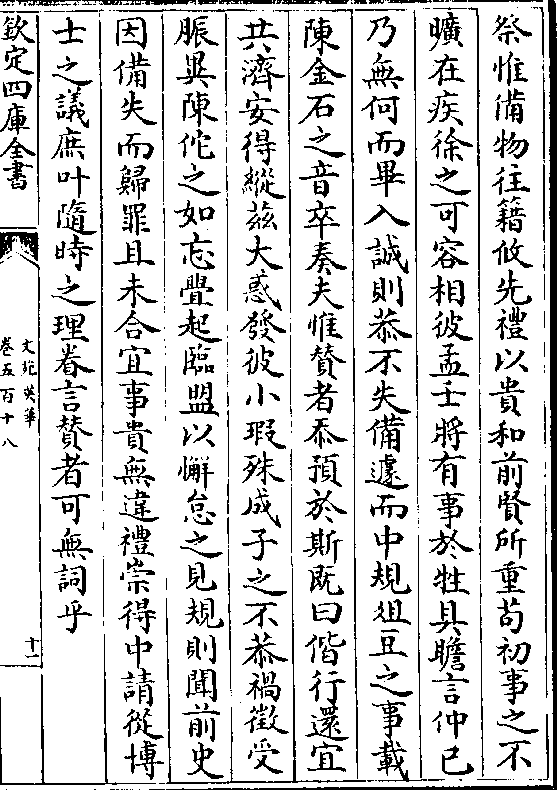 祭惟備物往籍攸先禮以貴和前賢所重苟初事之不
曠在疾徐之可容相彼孟壬將有事於牲具瞻言仲已
乃無何而畢入誠則恭不失備遽而中規俎豆之事載
陳金石之音卒奏夫惟賛者忝預於斯既曰偕行還宜
共濟安得縱兹大惑發彼小瑕殊成子之不恭禍徵受
脤異陳佗之如忘舋起臨盟以懈怠之見規則聞前史
因備失而歸罪且未合宜事貴無違禮崇得中請從博
士之議庶叶隨時之理眷言賛者可無詞乎
欽定四庫全書
文苑英華
卷五百十八
十一